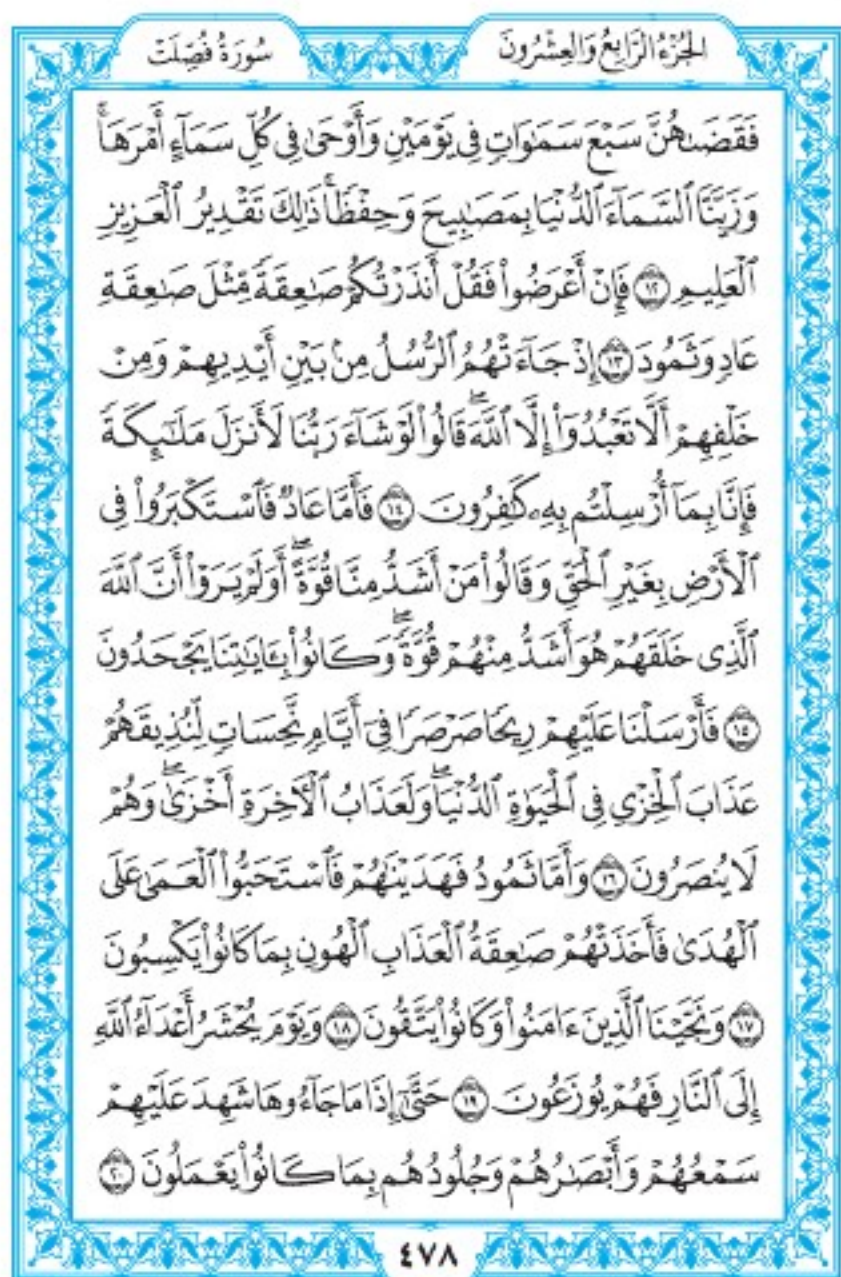 الجُزْءُ الرَّابِعُ وَالعِشْرُونَ
سُورَةُ فُصِّلَتْ
فَقَضَىٰهُنَّ سَبْعَ سَمَٰوَاتٍ فِى يَوْمَيْنِ وَأَوْحَىٰ فِى كُلِّ سَمَآءٍ أَمْرَهَاۚ
وَزَيَّنَّا ٱلسَّمَآءَ ٱلدُّنْيَا بِمَصَٰبِيحَ وَحِفْظًاۚ ذَٰلِكَ تَقْدِيرُ ٱلْعَزِيزِ
ٱلْعَلِيمِ ١٢ فَإِنْ أَعْرَضُوا۟ فَقُلْ أَنذَرْتُكُمْ صَٰعِقَةً مِّثْلَ صَٰعِقَةِ
عَادٍ وَثَمُودَ ١٣ إِذْ جَآءَتْهُمُ ٱلرُّسُلُ مِنۢ بَيْنِ أَيْدِيهِمْ وَمِنْ
خَلْفِهِمْ أَلَّا تَعْبُدُوٓا۟ إِلَّا ٱللَّهَۖ قَالُوا۟ لَوْ شَآءَ رَبُّنَا لَأَنزَلَ مَلَٰٓئِكَةً
فَإِنَّا بِمَآ أُرْسِلْتُم بِهِۦ كَٰفِرُونَ ١٤ فَأَمَّا عَادٌ فَٱسْتَكْبَرُوا۟ فِى
ٱلْأَرْضِ بِغَيْرِ ٱلْحَقِّ وَقَالُوا۟ مَنْ أَشَدُّ مِنَّا قُوَّةًۖ أَوَلَمْ يَرَوْا۟ أَنَّ ٱللَّهَ
ٱلَّذِى خَلَقَهُمْ هُوَ أَشَدُّ مِنْهُمْ قُوَّةًۖ وَكَانُوا۟ بِـَٔايَٰتِنَا يَجْحَدُونَ
١٥ فَأَرْسَلْنَا عَلَيْهِمْ رِيحًا صَرْصَرًا فِىٓ أَيَّامٍ نَّحِسَاتٍ لِّنُذِيقَهُمْ
عَذَابَ ٱلْخِزْىِ فِى ٱلْحَيَوٰةِ ٱلدُّنْيَاۖ وَلَعَذَابُ ٱلْـَٔاخِرَةِ أَخْزَىٰۖ وَهُمْ
لَا يُنصَرُونَ ١٦ وَأَمَّا ثَمُودُ فَهَدَيْنَٰهُمْ فَٱسْتَحَبُّوا۟ ٱلْعَمَىٰ عَلَى
ٱلْهُدَىٰ فَأَخَذَتْهُمْ صَٰعِقَةُ ٱلْعَذَابِ ٱلْهُونِ بِمَا كَانُوا۟ يَكْسِبُونَ
١٧ وَنَجَّيْنَا ٱلَّذِينَ ءَامَنُوا۟ وَكَانُوا۟ يَتَّقُونَ ١٨ وَيَوْمَ يُحْشَرُ أَعْدَآءُ ٱللَّهِ
إِلَى ٱلنَّارِ فَهُمْ يُوزَعُونَ ١٩ حَتَّىٰٓ إِذَا مَا جَآءُوهَا شَهِدَ عَلَيْهِمْ
سَمْعُهُمْ وَأَبْصَٰرُهُمْ وَجُلُودُهُم بِمَا كَانُوا۟ يَعْمَلُونَ ٢٠
٤٧٨